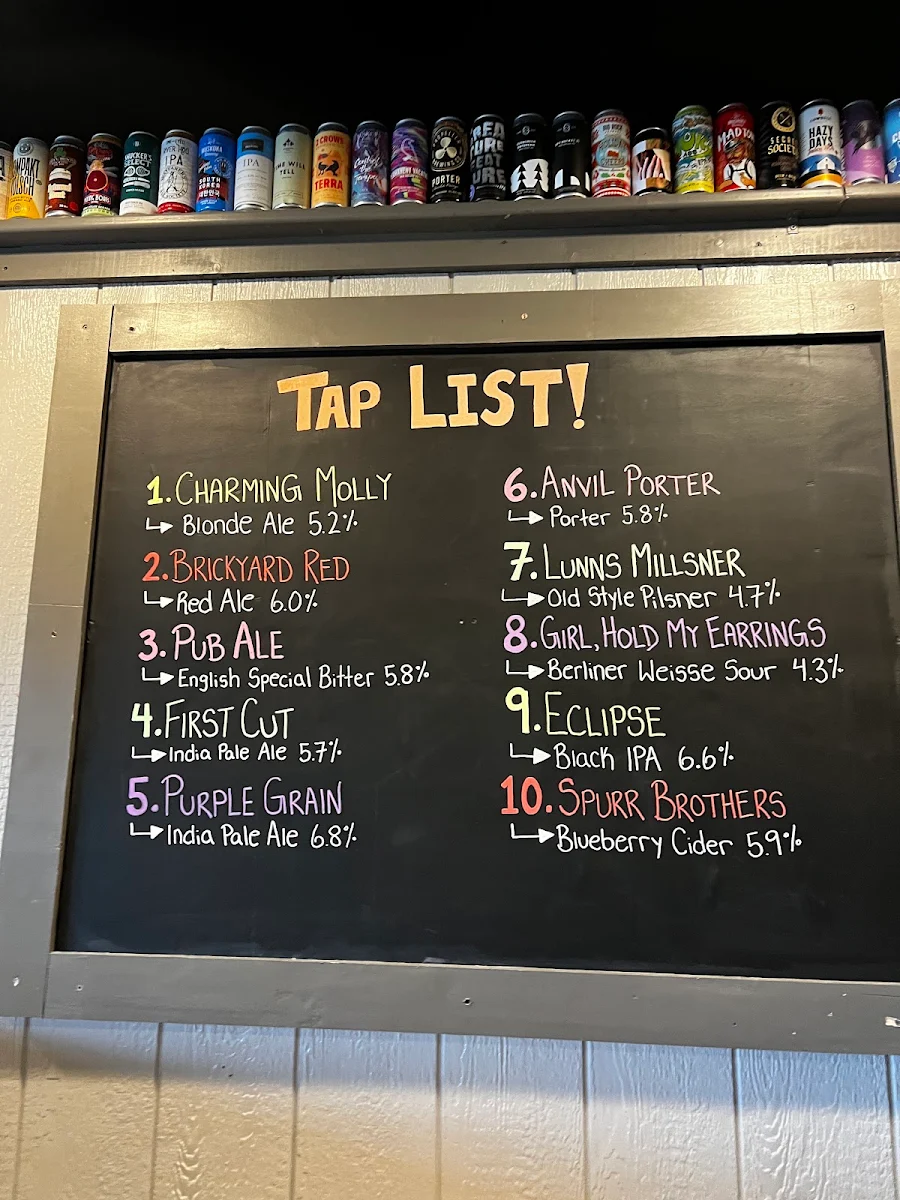 IPA
SOUTH
KOREA
IPA
2 CROWS
TERRA
PORTER
MADTOM
SECRET
SOCIETY
HAZY
DAYS
TAP LIST!
1. CHARMING MOLLY
Blonde Ale 5.2%
2. BRICKYARD RED
Red Ale 6.0%
3. PUB ALE
English Special Bitter 5.8%
4. FIRST CUT
India Pale Ale 5.7%
5. PURPLE GRAIN
India Pale Ale 6.8%
6. ANVIL PORTER
Porter 5.8%
7. LUNNS MILLSNER
Old Style Pilsner 4.7%
8. GIRL, HOLD MY EARRINGS
Berliner Weisse Sour 4.3%
9. ECLIPSE
Black IPA 6.6%
10. SPURR BROTHERS
Blueberry Cider 5.9%